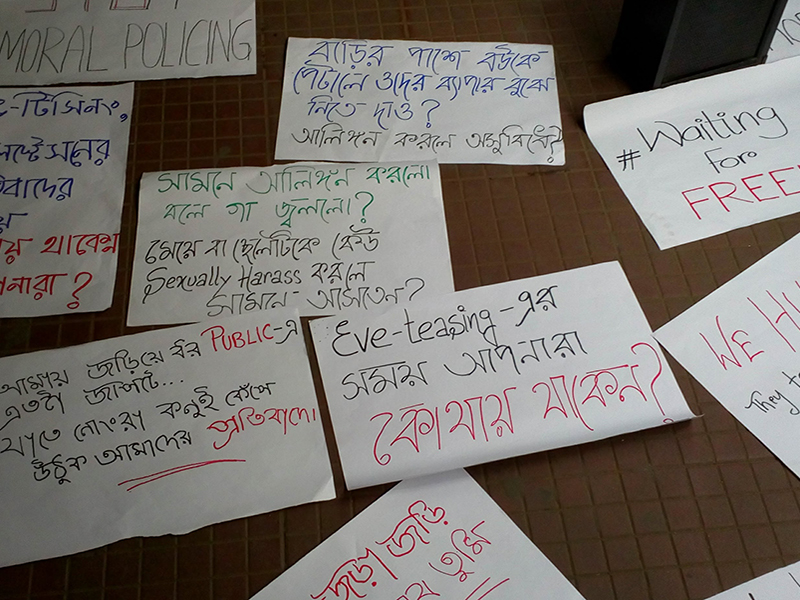 MORAL POLICING
বাড়ির পাশে বউকে
পেটালে ওদের ব্যাপার বুঝে
নিতে দাও?
আলিঙ্গন করলে অসুবিধে?
#Waiting
For
FREE
-টিসিনং,
বাদের
থাকেন
নারা?
সামনে আলিঙ্গন করলো
বলে গা জ্বললো?
মেয়ে বা ছেলেটিকে কেউ
Sexually Harass করলে
সামনে আসতেন?
আমায় জড়িয়ে ধর PUBLIC-এ
এতটা জাপটে...
যাতে নোংরা কনুই কেঁপে
উঠুক আমাদের প্রতিবাদে।
Eve-teasing-এর
সময় আপনারা
কোথায় থাকেন?
WE
They
তুমি